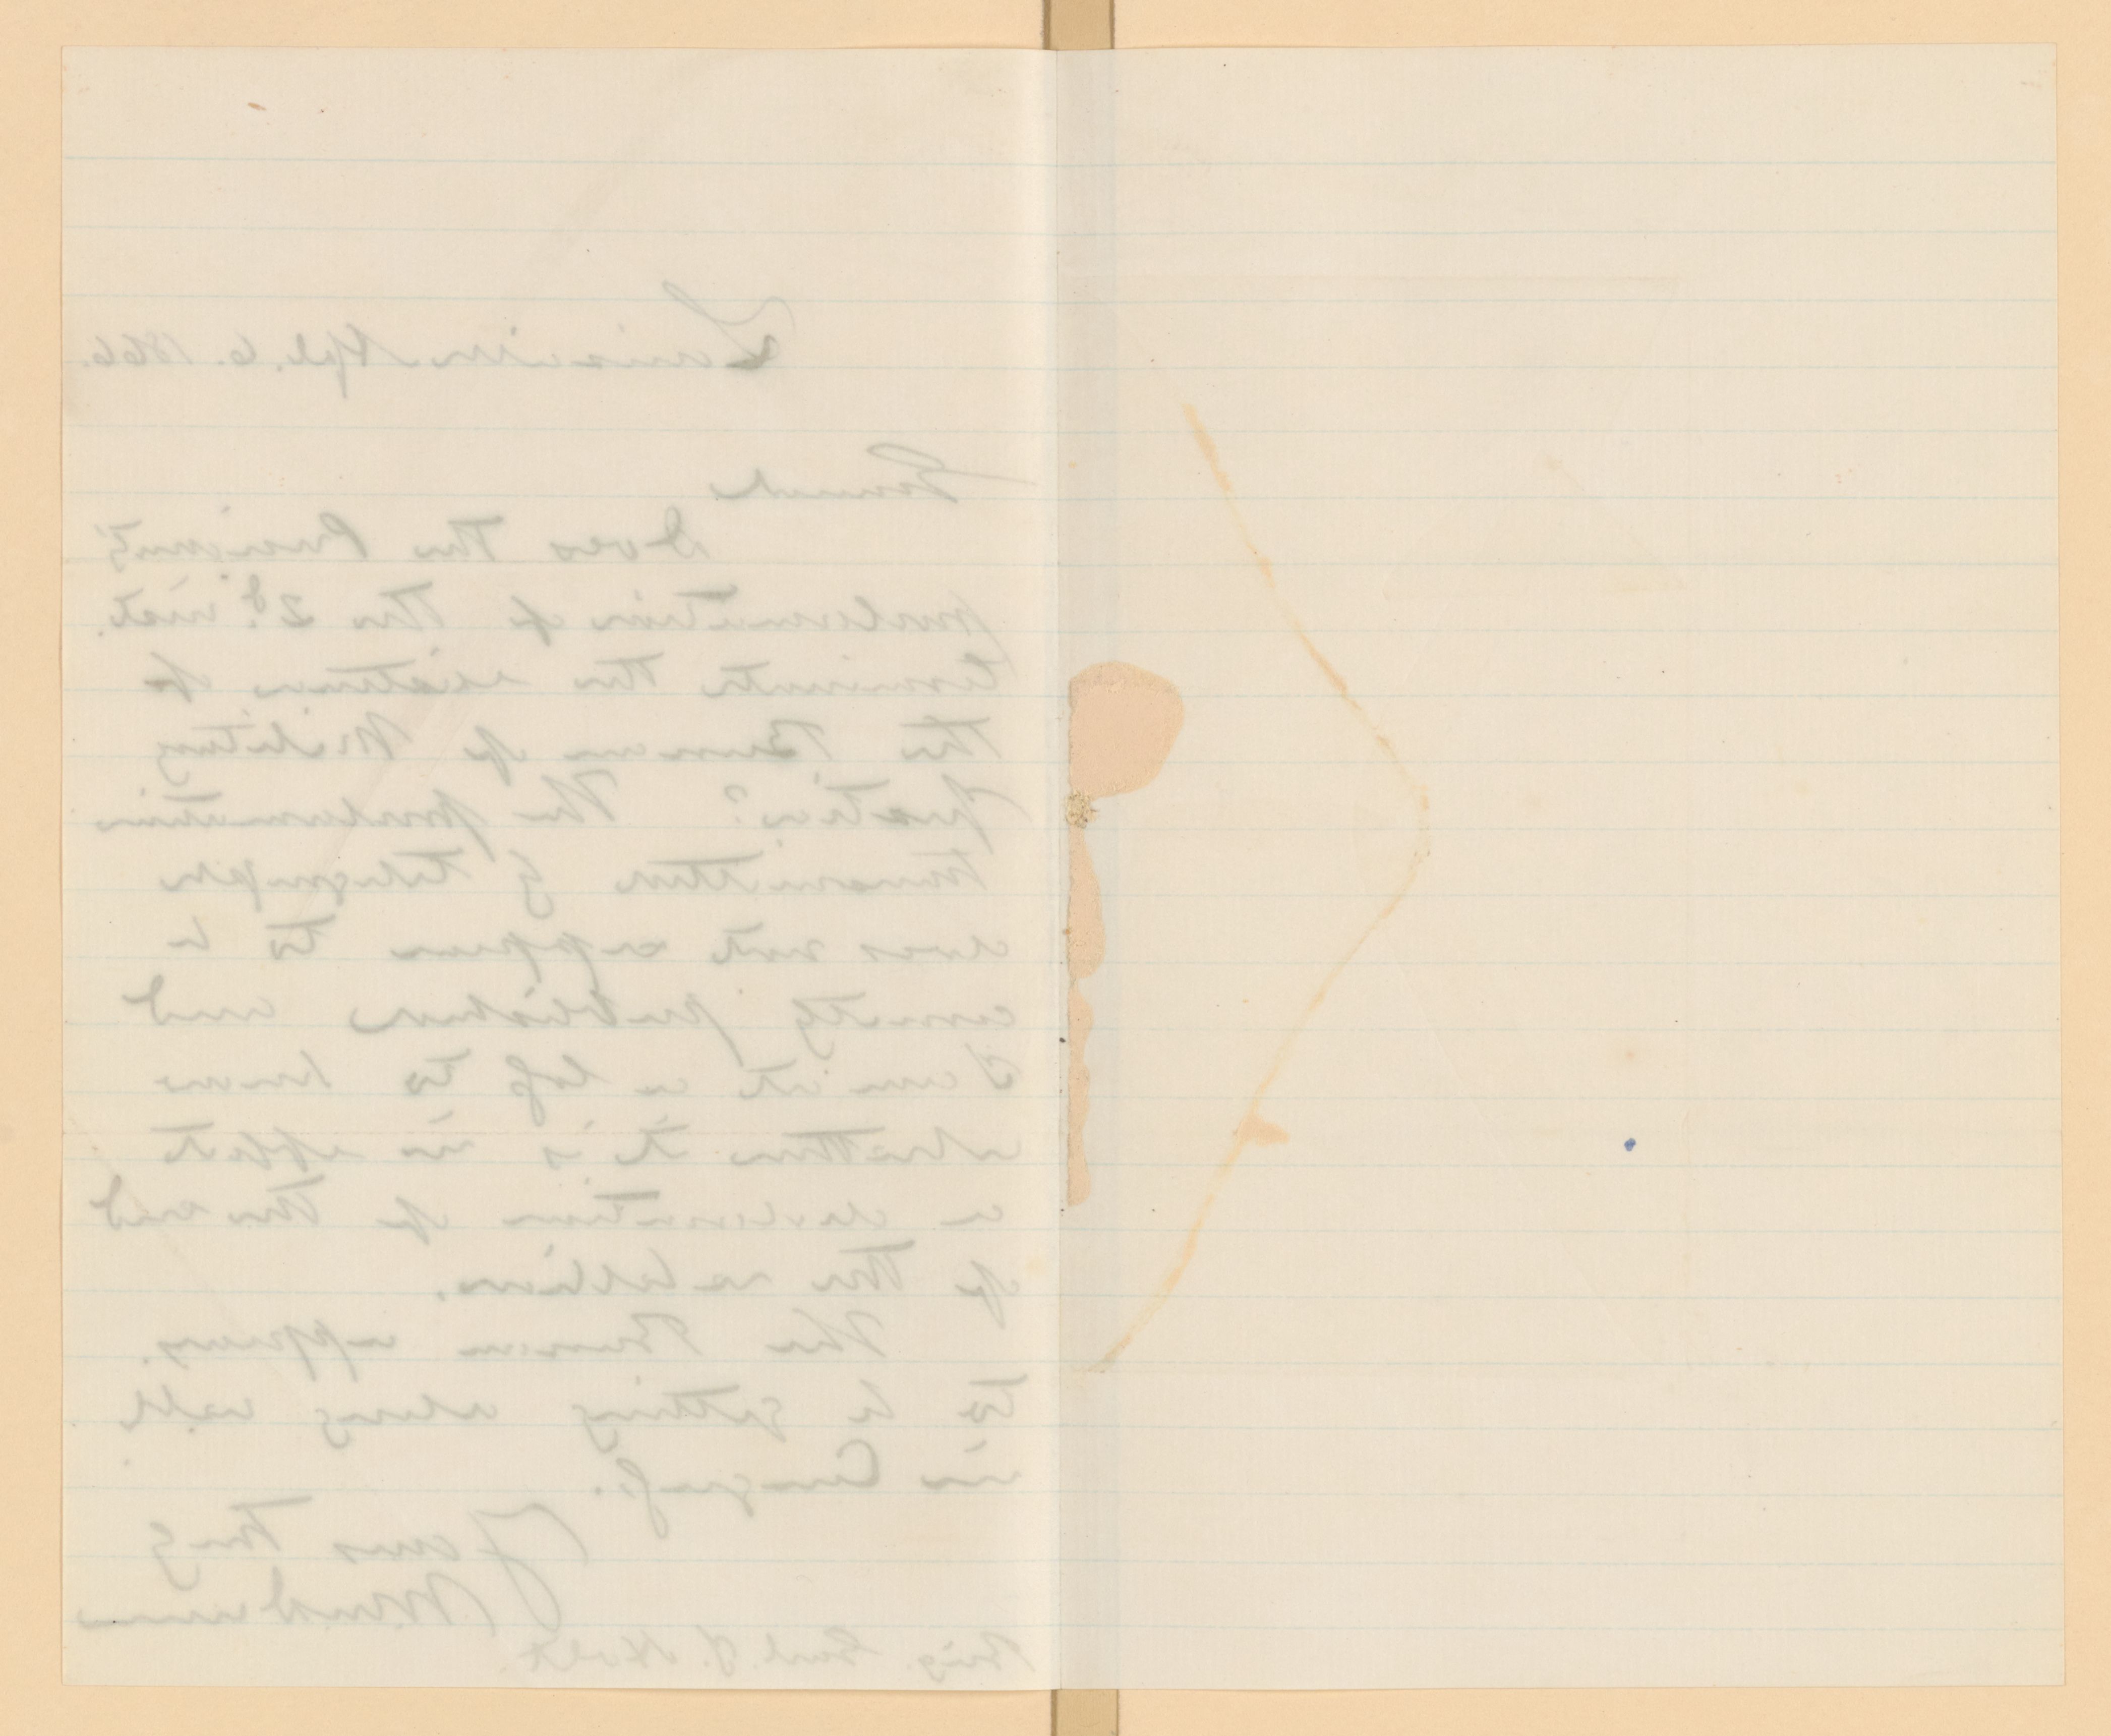 Louisville Apl. 6. 1866.
General
Does the President's
proclamation of the 2d. inst.
terminate the existence of
the Bureau of Military
Justice? The proclamation
transmitted by telegraph
does not appear to be
correctly published and
I am at a loss to know
whether it is in effect
a declaration of the end
of the rebellion.
The Bureau appears
to be getting along well
in Congress.
Yours truly
Brig. Genl. J. Holt